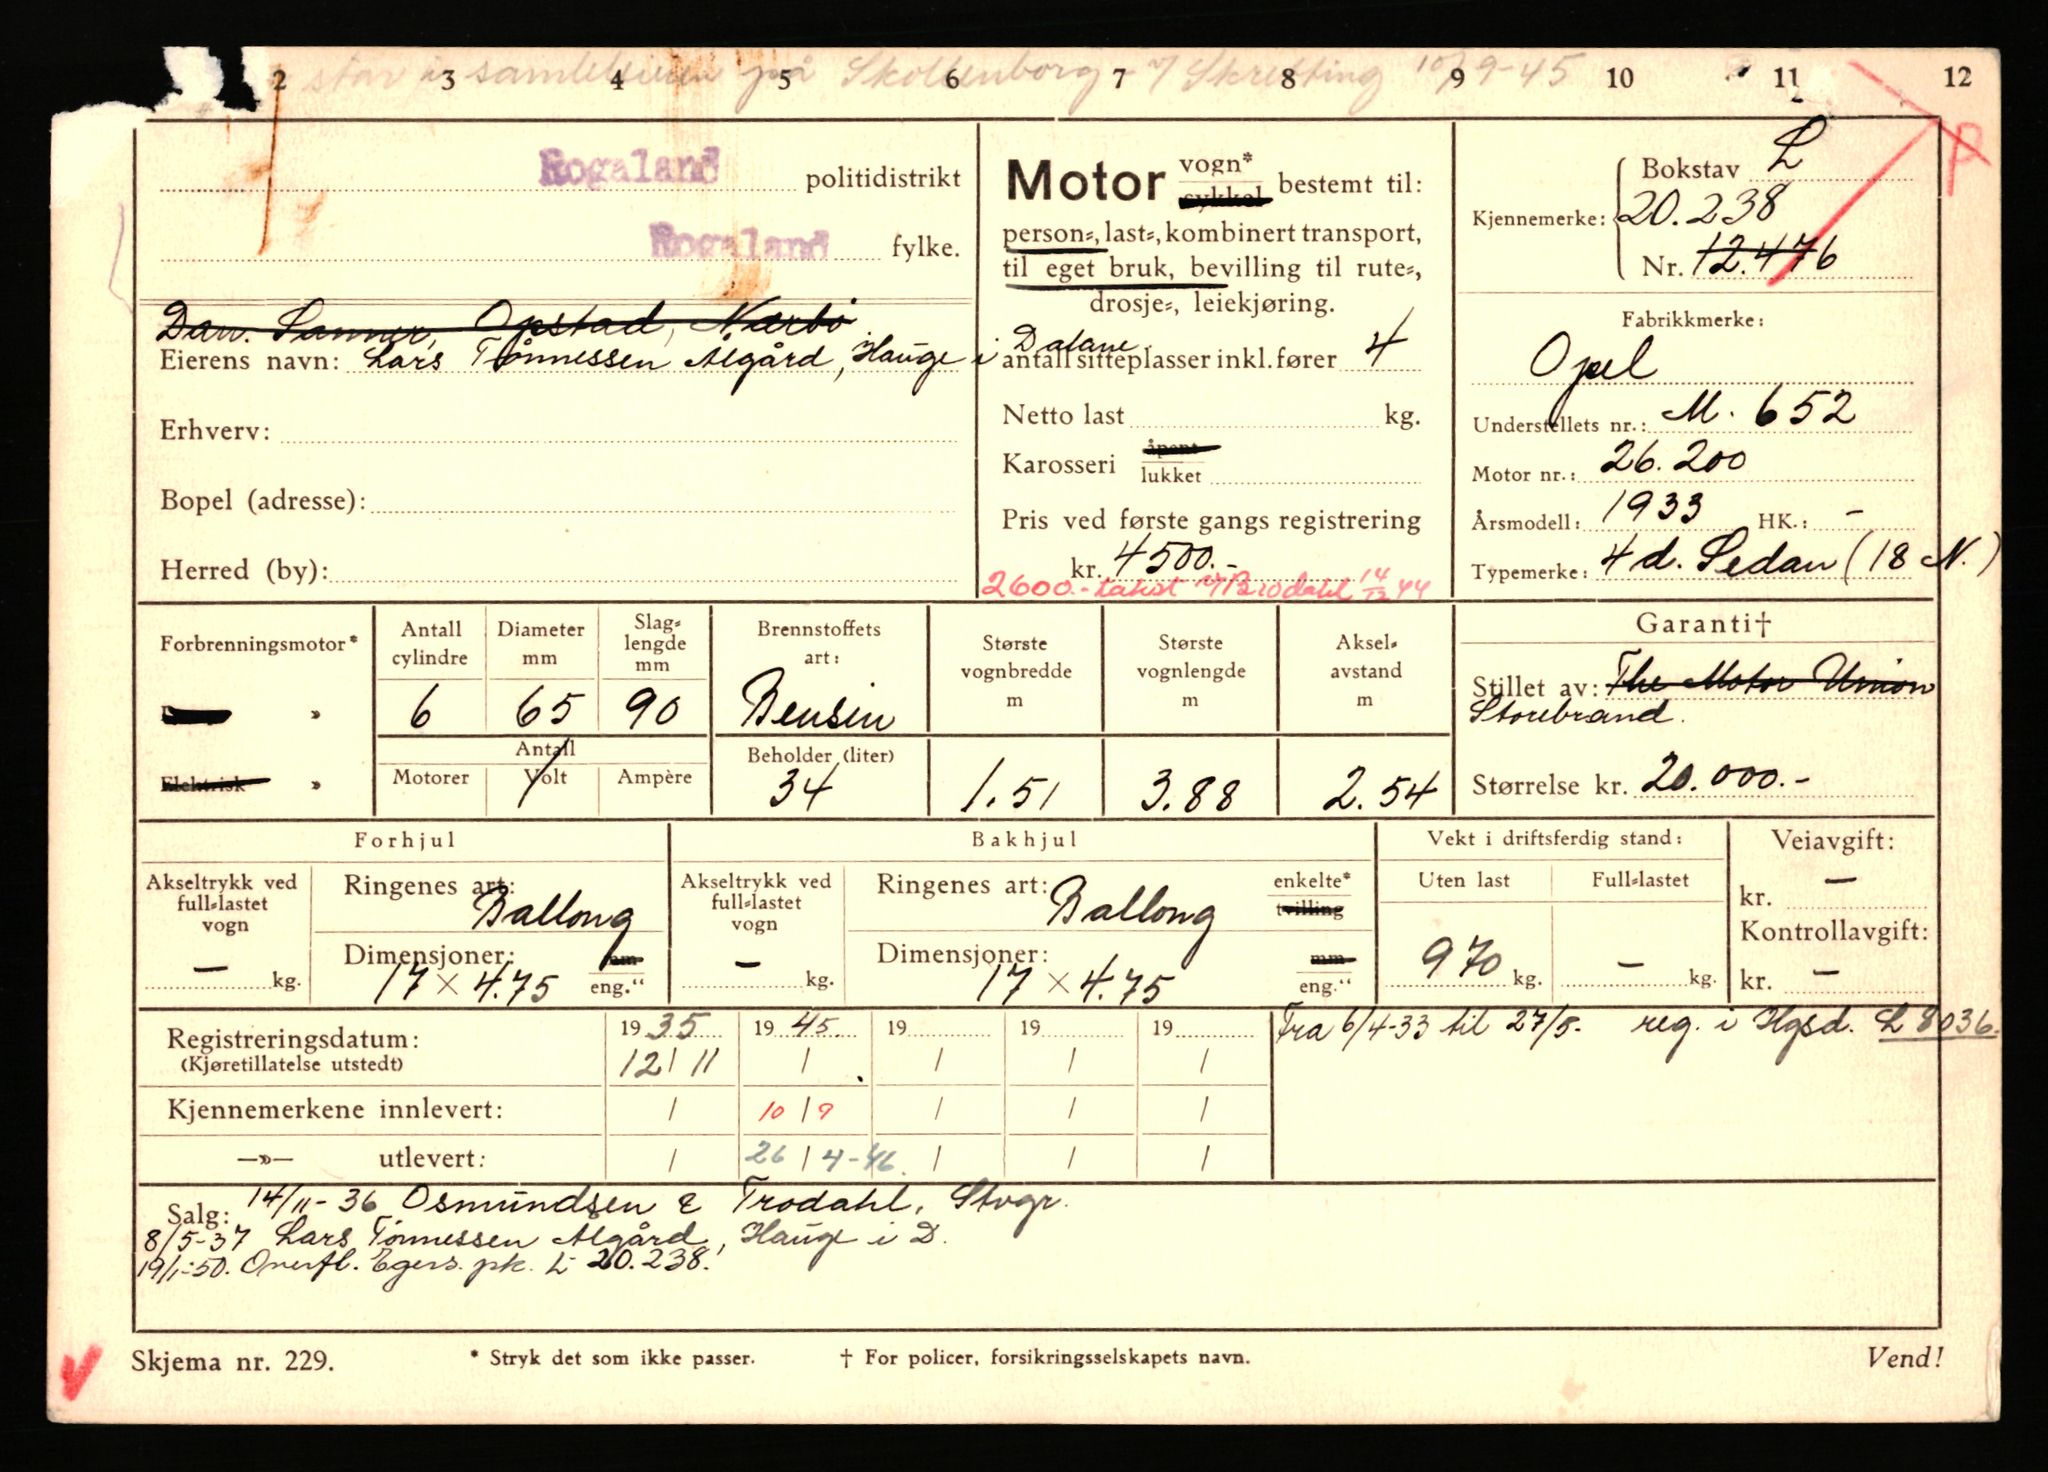 står i samleleiren på Skollenborg 7/ Skretting 10/9-45
2 3 4 5 6 7 8 9 10 11 12
Rogaland politidistrikt
Rogaland fylke.
Dan. Sanner, Opstad, Nærbø
Eierens navn: Lars Tønnessen Ålgård, Hauge i Dalane
Erhverv:
Bopel (adresse):
Herred (by):
Motor vogn* sykkel bestemt til:
person-, last-, kombinert transport,
til eget bruk, bevilling til rute-,
drosje-, leiekjøring.
antall sitteplasser inkl. fører 4
Netto last kg.
Karosseri åpent lukket
Pris ved første gangs registrering
kr. 4500.-
2600.- takst v/ Brodahl 14/12 44
Kjennemerke: Bokstav L
20.238
Nr. 12.476
Fabrikkmerke:
Opel
Understellets nr.: M. 652
Motor nr.: 26.200
Årsmodell: 1933 HK.: -
Typemerke: 4 d. Sedan (18 N.)
Forbrenningsmotor* Antall cylindre Diameter mm Slag-lengde mm Brennstoffets art: Største vognbredde m Største vognlengde m Aksel-avstand m
» 6 65 90 Bensin
Elektrisk » Antall Motorer Volt Ampère Beholder (liter)
34 1.51 3.88 2.54
Garanti†
Stillet av: The Motor Union
Storebrand.
Størrelse kr. 20.000.-
Forhjul
Akseltrykk ved full-lastet vogn
- kg.
Ringenes art: Ballong
Dimensjoner: 17 × 4.75 mm eng."
Bakhjul
Akseltrykk ved full-lastet vogn
- kg.
Ringenes art: Ballong enkelte* tvilling
Dimensjoner: 17 × 4.75 mm eng."
Vekt i driftsferdig stand:
Uten last Full-lastet
970 kg. - kg.
Veiavgift:
kr. -
Kontrollavgift:
kr. -
Registreringsdatum: 19 35 19 45 19 19 19
(Kjøretillatelse utstedt) 12/11 / / / /
Kjennemerkene innlevert: / 10/9 / / /
—»— utlevert: / 26/4-46. / / /
Fra 6/4-33 til 27/5- reg. i Hgsd. L 8036.
Salg: 14/11-36 Osmundsen & Trodahl, Stvgr.
8/5-37 Lars Tønnessen Ålgård, Hauge i D.
19/1-50. Overfl. Egers. pk. L- 20.238.
Skjema nr. 229. * Stryk det som ikke passer. † For policer, forsikringsselskapets navn. Vend!